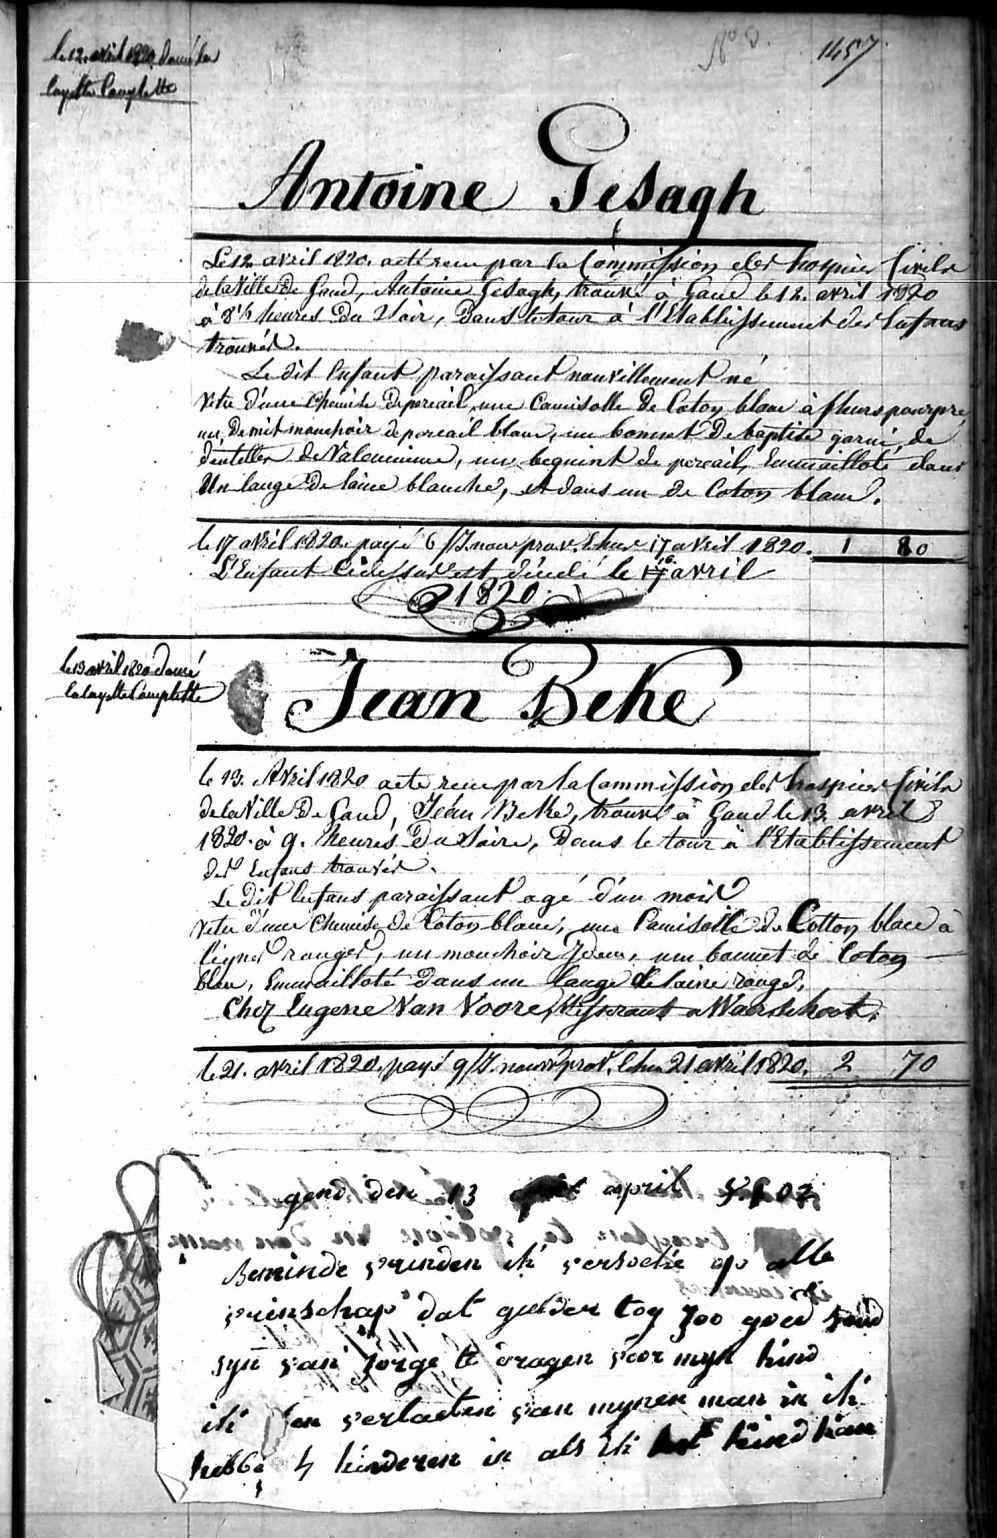 1457
le 12 avril 1820 donné la
layette Complette
Antoine Gesagh
Le 12 avril 1820. acté reçu par la Commission des hospices Civils
de la Ville de Gand, Antoine Gesagh, trouvé à Gand le 12. avril 1820
à 8½ heures du Soir, Dans le tour à l'Etablissement des Enfans
trouvés.
Le dit Enfant paraissant nouvellement né
vetu d'une Chemise de percail, une Camisolle de Coton blanc à fleurs pourpré
un Demit mouchoir de percail blanc, un bonnet De baptise garni de
dentelles de Valencienne, un beguint de percail, Emmailloté dans
Un lange De laine blanche, et dans un de Coton blanc.
le 17 avril 1820. payé 6 /J. nour prov. Echus 17 avril 1820. 1 80
L'Enfant Cidessus est décédé le 16 avril
1820.
le 13 avril 1820 donné
la layette Complette
Jean Beke
le 13. Avril 1820 acte reçu par la Commission des hospices Civils
de la Ville De Gand, Jean Beke, trouvé à Gand le 13 avril
1820. à 9. heures Du Soire, Dans le tour à l'Etablissement
des Enfans trouvés.
Le dit Enfans paraissant agé d'un mois
vetu d'une Chemise de Coton blanc, une Camisolle de Cotton blanc à
lignes rouges, un mouchoir idem, un bonnet de Coton
blan, Emmailloté Dans un lange de laine rouge,
Chez Eugene Van Voore, tisserant a Waerschoot.
le 21. avril 1820. payé 9/J. nour prov. Echus 21 avril 1820. 2 70
gend den 13 april
Beminde vrinden ik versoeke op alle
vrinschap dat gulder tog zoo goed
syn van zorge te dragen voor myn kind
ik ben verlaeten van mynen man in ik
hebbe 4 kinderen in als ik het kind kan